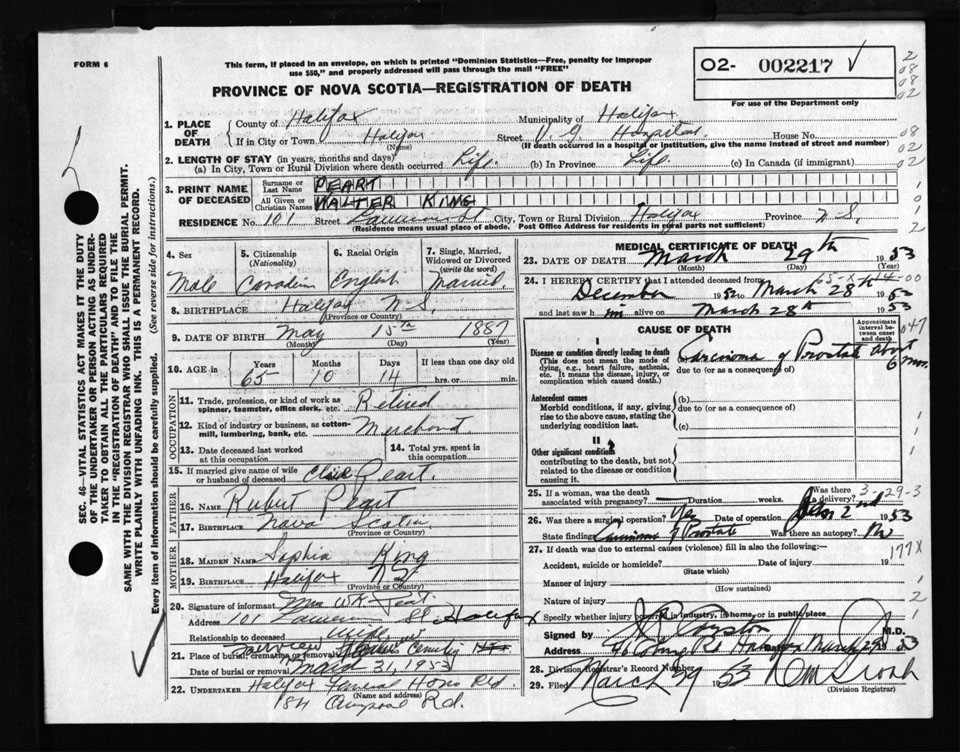 FORM 6
This form, if placed in an envelope, on which is printed "Dominion Statistics—Free, penalty for improper
use $50," and properly addressed will pass through the mail "FREE"
PROVINCE OF NOVA SCOTIA—REGISTRATION OF DEATH
O2- 002217
For use of the Department only
2
08
08
02
1. PLACE OF DEATH
County of Halifax Municipality of Halifax
If in City or Town Halifax Street V. G. Hospital House No.
(Name) (If death occurred in a hospital or institution, give the name instead of street and number)
08
2. LENGTH OF STAY (in years, months and days)
(a) In City, Town or Rural Division where death occurred Life. (b) In Province Life. (c) In Canada (if immigrant)
02
3. PRINT NAME OF DECEASED
Surname or Last Name PEART
All Given or Christian Names WALTER KING
RESIDENCE No. 101 Street City, Town or Rural Division Halifax Province N.S.
(Residence means usual place of abode. Post Office Address for residents in rural parts not sufficient)
4. Sex Male
5. Citizenship (Nationality) Canadian
6. Racial Origin English
7. Single, Married, Widowed or Divorced (write the word) Married.
8. BIRTHPLACE Halifax N.S.
(Province or Country)
9. DATE OF BIRTH May 15th 1887
(Month) (Day) (Year)
10. AGE in Years 65 Months 10 Days 14 If less than one day old hrs. or min.
OCCUPATION
11. Trade, profession, or kind of work as spinner, teamster, office clerk, etc. Retired
12. Kind of industry or business, as cotton-mill, lumbering, bank, etc. Merchant
13. Date deceased last worked at this occupation
14. Total yrs. spent in this occupation
15. If married give name of wife or husband of deceased Peart.
FATHER
16. NAME Robert Peart
17. BIRTHPLACE Nova Scotia
(Province or Country)
MOTHER
18. MAIDEN NAME Sophia King
19. BIRTHPLACE Halifax N.S.
(Province or Country)
20. Signature of informant W.K. Peart
Address 101 St Halifax
Relationship to deceased Wife
21. Place of burial, cremation or removal Fairview
Date of burial or removal March 31, 1953
22. UNDERTAKER Halifax Funeral Home
(Name and address)
Rd.
MEDICAL CERTIFICATE OF DEATH
23. DATE OF DEATH March 29th 1953
(Month) (Day) (Year)
24. I HEREBY CERTIFY that I attended deceased from
December 1952 to March 28th 1953
and last saw him alive on March 28th 1953
CAUSE OF DEATH
Approximate interval between onset and death
I
Disease or condition directly leading to death
(This does not mean the mode of dying, e.g., heart failure, asthenia, etc. It means the disease, injury, or complication which caused death.)
Carcinoma of Prostate about 6 mos.
due to (or as a consequence of)
Antecedent causes
Morbid conditions, if any, giving rise to the above cause, stating the underlying condition last.
(b)
due to (or as a consequence of)
(c)
II
Other significant conditions
contributing to the death, but not related to the disease or condition causing it.
25. If a woman, was the death associated with pregnancy? Duration weeks. Was there a delivery?
3-29-3
26. Was there a surgical operation? Yes Date of operation Jan 2nd 1953
State finding Carcinoma of Prostate Was there an autopsy? No
27. If death was due to external causes (violence) fill in also the following:—
177X
Accident, suicide or homicide? Date of injury 19
(State which)
Manner of injury
(How sustained)
Nature of injury
Specify whether injury in industry, in home, or in public place
Signed by M.D.
Address March 29 53
28. Division Registrar's Record Number
29. Filed March 29 1953
(Division Registrar)
SEC. 46—VITAL STATISTICS ACT MAKES IT THE DUTY
OF THE UNDERTAKER OR PERSON ACTING AS UNDER-
TAKER TO OBTAIN ALL THE PARTICULARS REQUIRED
IN THE "REGISTRATION OF DEATH" AND TO FILE THE
SAME WITH THE DIVISION REGISTRAR WHO SHALL ISSUE THE BURIAL PERMIT.
WRITE PLAINLY WITH UNFADING INK. THIS IS A PERMANENT RECORD.
Every item of information should be carefully supplied. (See reverse side for instructions.)